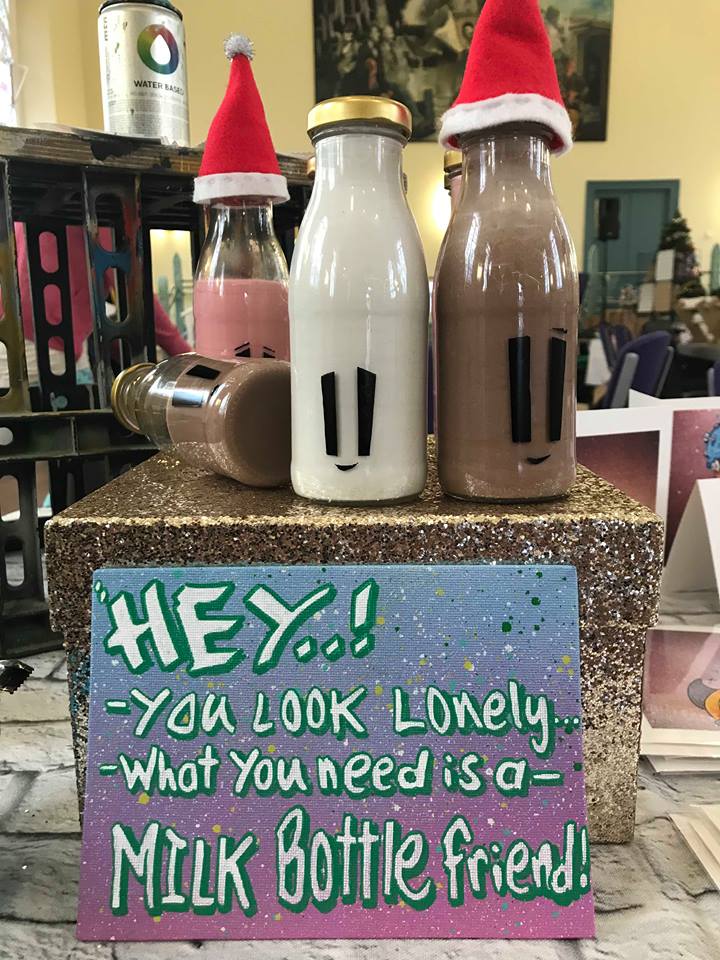 WATER BASED
"HEY..!
-YOU LOOK LOnely...
-What You need is a-
MILK Bottle friend!